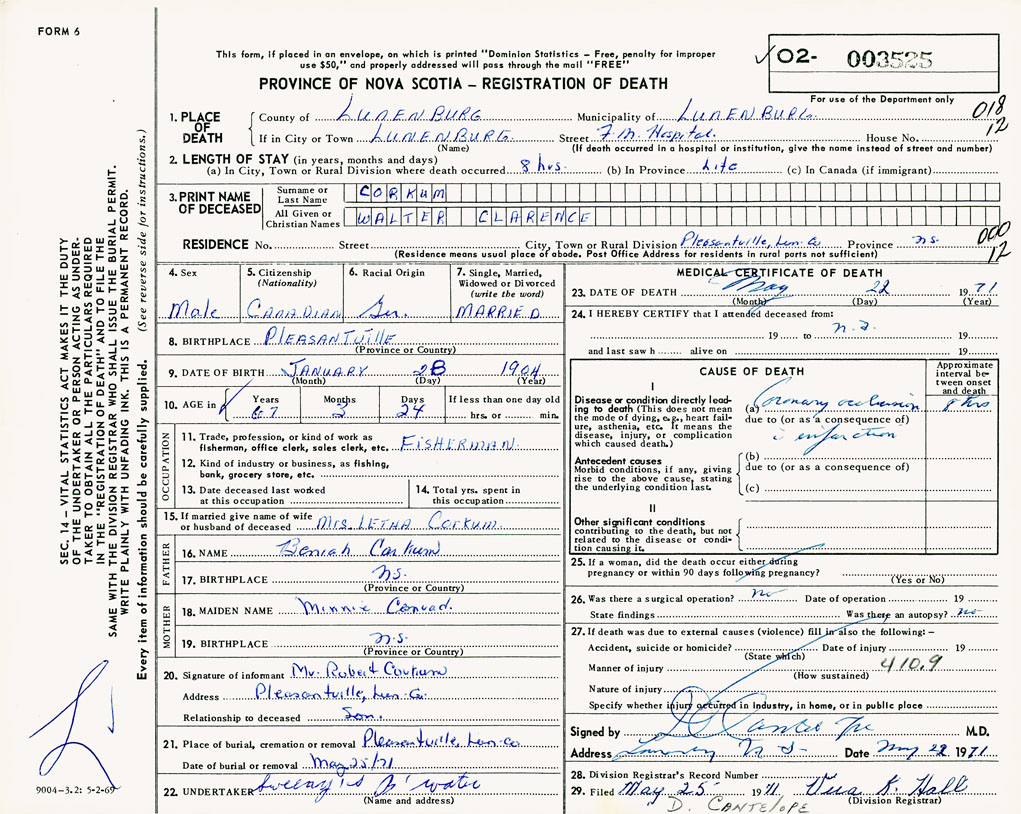 FORM 6
This form, if placed in an envelope, on which is printed "Dominion Statistics – Free, penalty for improper
use $50," and properly addressed will pass through the mail "FREE"
PROVINCE OF NOVA SCOTIA – REGISTRATION OF DEATH
O2- 003525
For use of the Department only
018
12
1. PLACE OF DEATH
County of LUNENBURG Municipality of LUNENBURG
If in City or Town LUNENBURG Street F.M. Hospital. House No.
(Name) (If death occurred in a hospital or institution, give the name instead of street and number)
2. LENGTH OF STAY (in years, months and days)
(a) In City, Town or Rural Division where death occurred 8 hrs. (b) In Province Life (c) In Canada (if immigrant)
3. PRINT NAME OF DECEASED
Surname or Last Name CORKUM
All Given or Christian Names WALTER CLARENCE
000
12
RESIDENCE No. Street City, Town or Rural Division Pleasantville, Lun. Co. Province N.S.
(Residence means usual place of abode. Post Office Address for residents in rural parts not sufficient)
4. Sex Male
5. Citizenship (Nationality) CANADIAN
6. Racial Origin Ger.
7. Single, Married, Widowed or Divorced (write the word) MARRIED
8. BIRTHPLACE PLEASANTVILLE
(Province or Country)
9. DATE OF BIRTH JANUARY 28 1904
(Month) (Day) (Year)
10. AGE in Years 67 Months 3 Days 24 If less than one day old hrs. or min.
OCCUPATION
11. Trade, profession, or kind of work as
fisherman, office clerk, sales clerk, etc. FISHERMAN.
12. Kind of industry or business, as fishing,
bank, grocery store, etc.
13. Date deceased last worked
at this occupation
14. Total yrs. spent in
this occupation
15. If married give name of wife
or husband of deceased MRS. LETHA CORKUM.
FATHER
16. NAME Beniah Corkum
17. BIRTHPLACE N.S.
(Province or Country)
MOTHER
18. MAIDEN NAME Minnie Conrad.
19. BIRTHPLACE N.S.
(Province or Country)
20. Signature of informant Mr. Robert Corkum
Address Pleasantville, Lun. Co.
Relationship to deceased Son.
21. Place of burial, cremation or removal Pleasantville, Lun. Co
Date of burial or removal May 25/71
22. UNDERTAKER Sweeny's B' water
(Name and address)
MEDICAL CERTIFICATE OF DEATH
23. DATE OF DEATH May 22 1971
(Month) (Day) (Year)
24. I HEREBY CERTIFY that I attended deceased from:
19 to 19
and last saw h alive on 19
CAUSE OF DEATH
Approximate interval between onset and death
I
Disease or condition directly lead-
ing to death (This does not mean
the mode of dying, e.g., heart fail-
ure, asthenia, etc. It means the
disease, injury, or complication
which caused death.)
(a) Coronary occlusion 8 hrs
due to (or as a consequence of)
infarction
Antecedent causes
Morbid conditions, if any, giving
rise to the above cause, stating
the underlying condition last.
(b)
due to (or as a consequence of)
(c)
II
Other significant conditions
contributing to the death, but not
related to the disease or condi-
tion causing it.
25. If a woman, did the death occur either during
pregnancy or within 90 days following pregnancy?
(Yes or No)
26. Was there a surgical operation? no Date of operation 19
State findings Was there an autopsy? no
27. If death was due to external causes (violence) fill in also the following: –
Accident, suicide or homicide? Date of injury 19
(State which)
Manner of injury 410.9
(How sustained)
Nature of injury
Specify whether injury occurred in industry, in home, or in public place
Signed by M.D.
Address N S Date May 22 1971
28. Division Registrar's Record Number
29. Filed May 25 1971 Vera K. Hall
(Division Registrar)
D. CANTELOPE
9004-3.2: 5-2-69
SEC. 14 – VITAL STATISTICS ACT MAKES IT THE DUTY
OF THE UNDERTAKER OR PERSON ACTING AS UNDER-
TAKER TO OBTAIN ALL THE PARTICULARS REQUIRED
IN THE "REGISTRATION OF DEATH" AND TO FILE THE
SAME WITH THE DIVISION REGISTRAR WHO SHALL ISSUE THE BURIAL PERMIT.
WRITE PLAINLY WITH UNFADING INK. THIS IS A PERMANENT RECORD.
Every item of information should be carefully supplied. (See reverse side for instructions.)